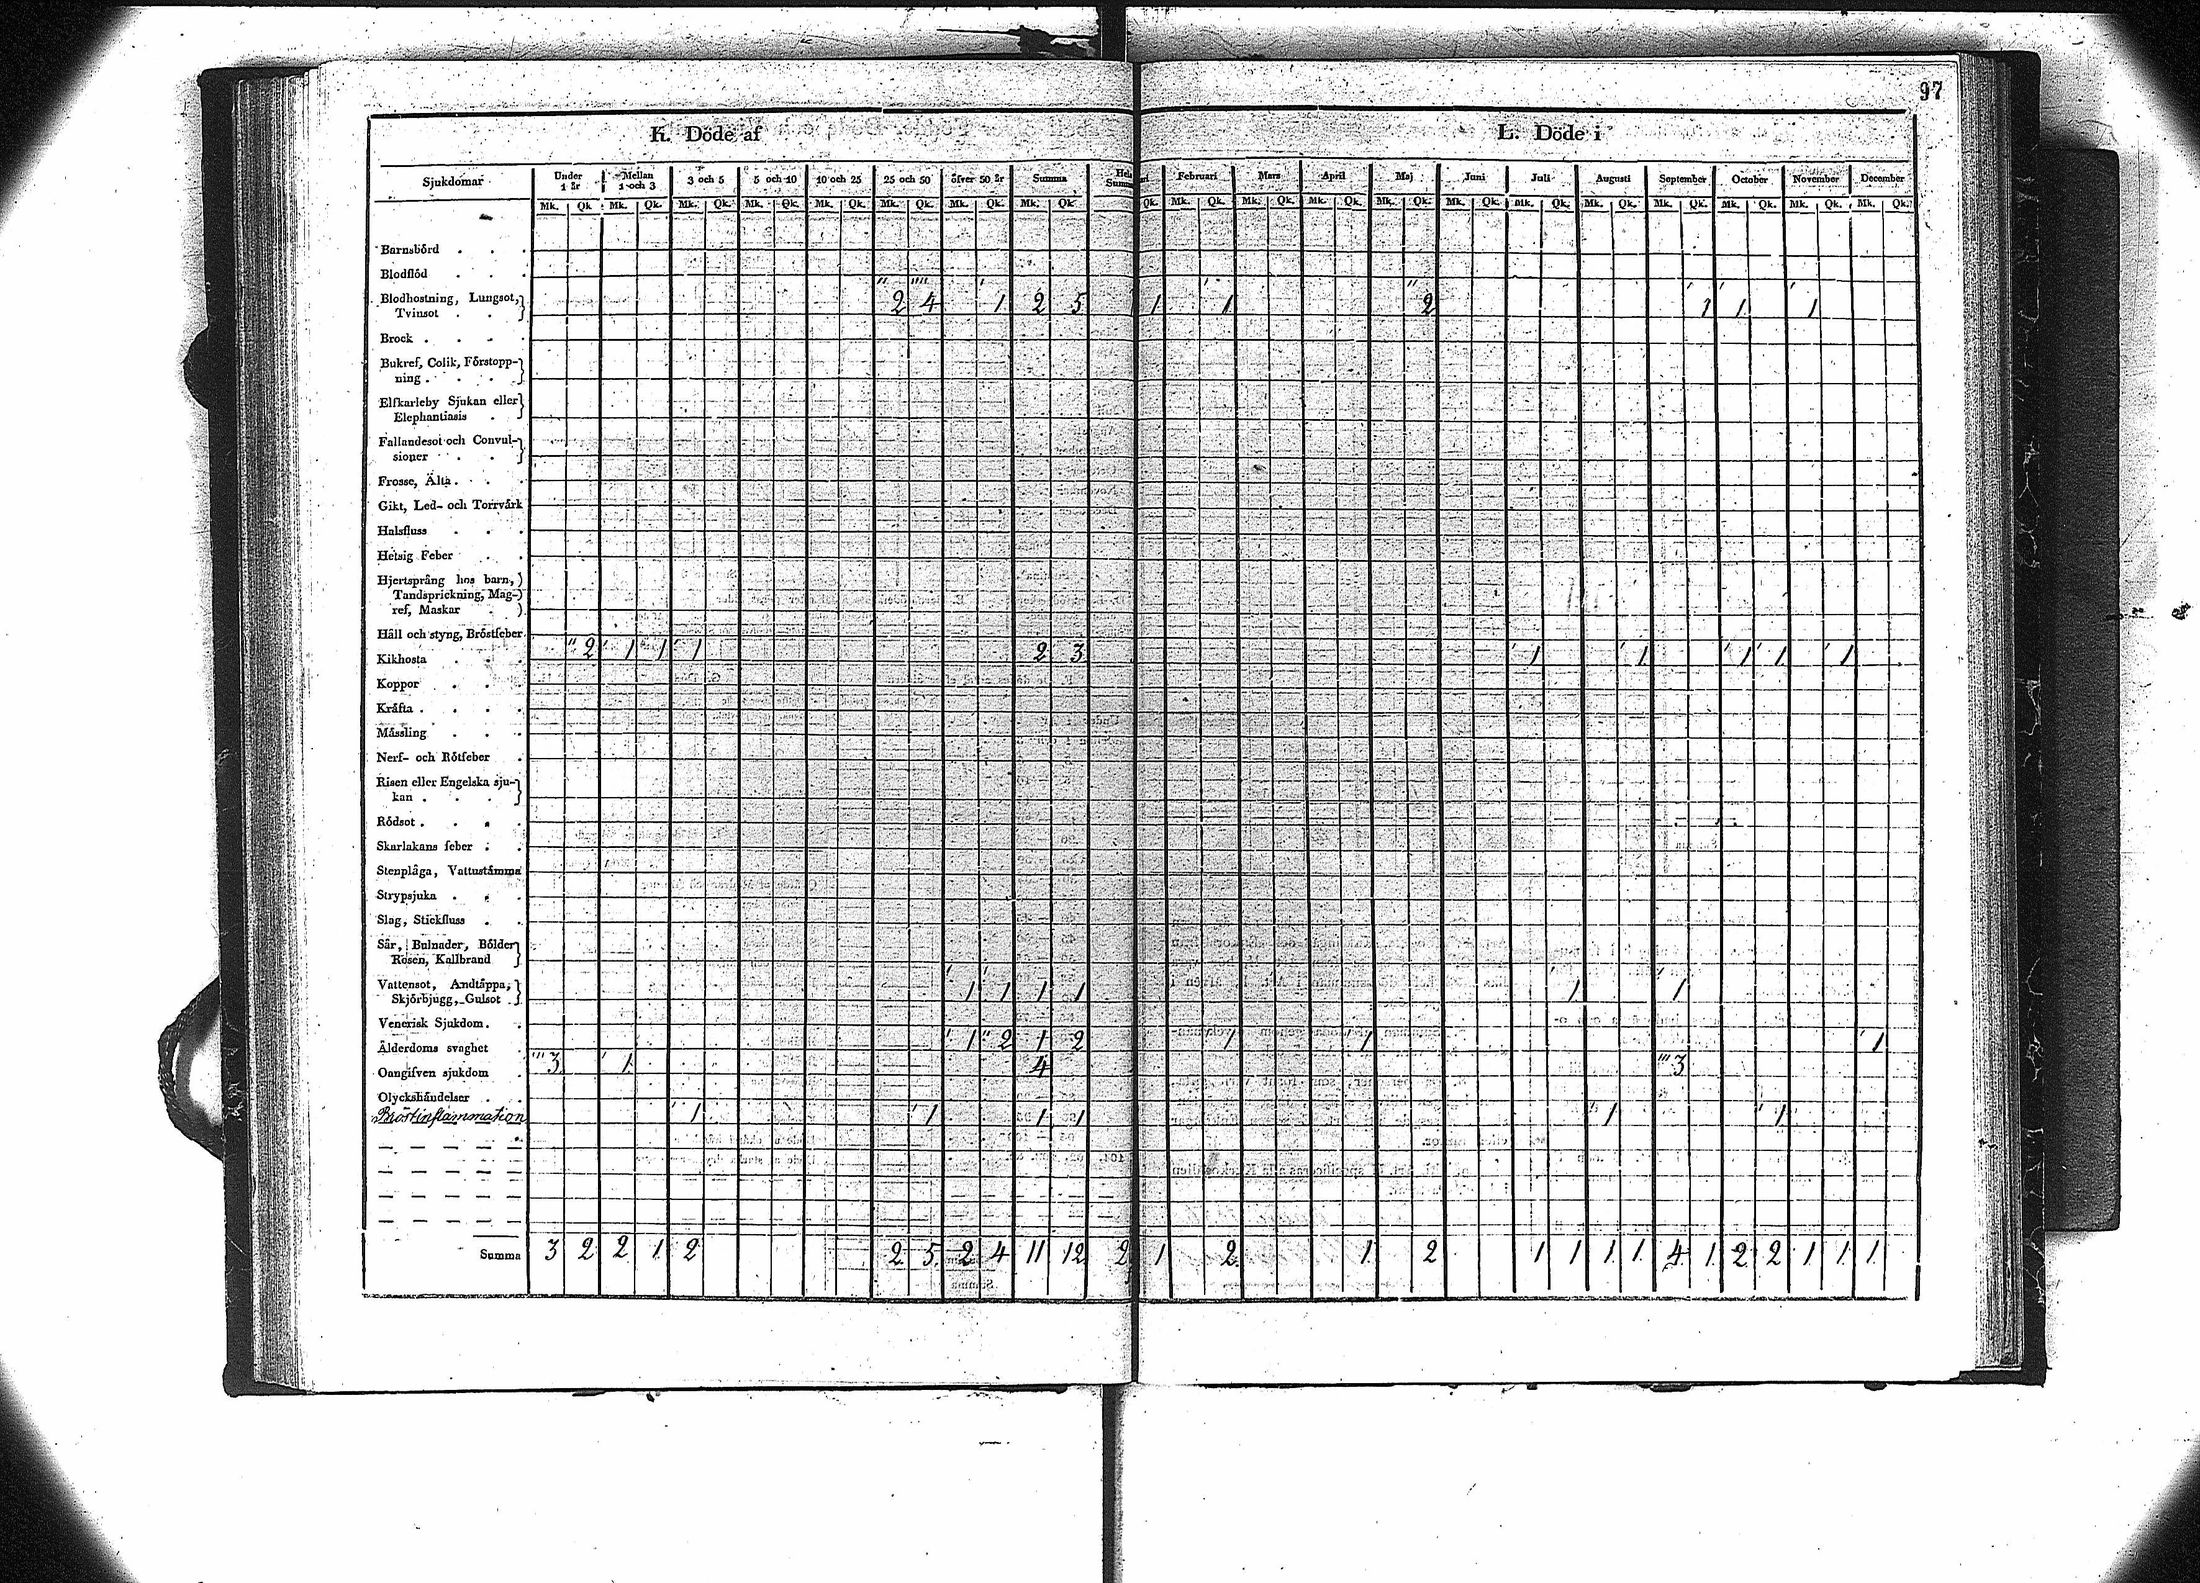 97
K. Döde af
L. Döde i
Sjukdomar Under 1 år Mellan 1 och 3 3 och 5 5 och 10 10 och 25 25 och 50 öfver 50 år Summa Februari Mars April Maj Juni Juli Augusti September October November December
Mk. Qk. Mk. Qk. Mk. Qk. Mk. Qk. Mk. Qk. Mk. Qk. Mk. Qk. Mk. Qk. Qk. Mk. Qk. Mk. Qk. Mk. Qk. Mk. Qk. Mk. Qk. Mk. Qk. Mk. Qk. Mk. Qk. Mk. Qk. Mk. Qk. Mk. Qk.
Barnsbörd
Blodflöd
Blodhostning, Lungsot,
Tvinsot 2 4 1 2 5 1 1 2 1 1 1
Brock
Bukref, Colik, Förstopp-
ning
Elfkarleby Sjukan eller
Elephantiasis
Fallandesot och Convul-
sioner
Frosse, Älta
Gikt, Led- och Torrvärk
Halsfluss
Hetsig Feber
Hjertsprång hos barn,
Tandsprickning, Mag-
ref, Maskar
Håll och styng, Bröstfeber
Kikhosta 2 1 1 1 2 3 1 1 1 1 1
Koppor
Kräfta
Mässling
Nerf- och Rötfeber
Risen eller Engelska sju-
kan
Rödsot
Skarlakans feber
Stenplåga, Vattustämma
Strypsjuka
Slag, Stickfluss
Sår, Bulnader, Bölder
Rosen, Kallbrand
Vattensot, Andtäppa,
Skjörbjugg, Gulsot 1 1 1 1 1 1
Venerisk Sjukdom
Ålderdoms svaghet 1 2 1 2 1 1 1
Oangifven sjukdom 3 1 4 3
Olyckshändelser
Bröstinflammation 1 1 1 1 1 1
Summa 3 2 2 1 2 2 5 2 4 11 12 2 1 2 1 2 1 1 1 1 4 1 2 2 1 1 1